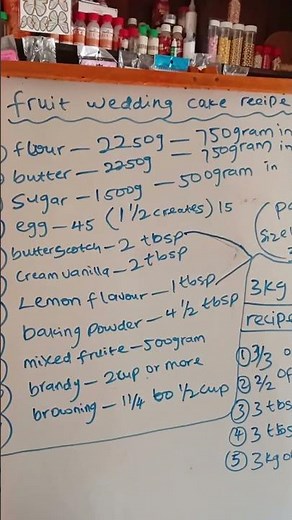 fruit wedding cake recipe
flour – 2250g – 750gram in
butter – 2250g – 750gram in
Sugar – 1500g – 500gram in
egg – 45 (1 1/2 creates) 15
butterscotch – 2 tbsp
Cream vanilla – 2 tbsp
Lemon flavour – 1 tbsp
baking powder – 4 1/2 tbsp
mixed fruite – 500gram
brandy – 2cup or more
browning – 11/4 to 1/2 cup
3kg
recipe
① 3/3
② 2/2 of
③ 3 tbs
④ 3 tbs
⑤ 3kg